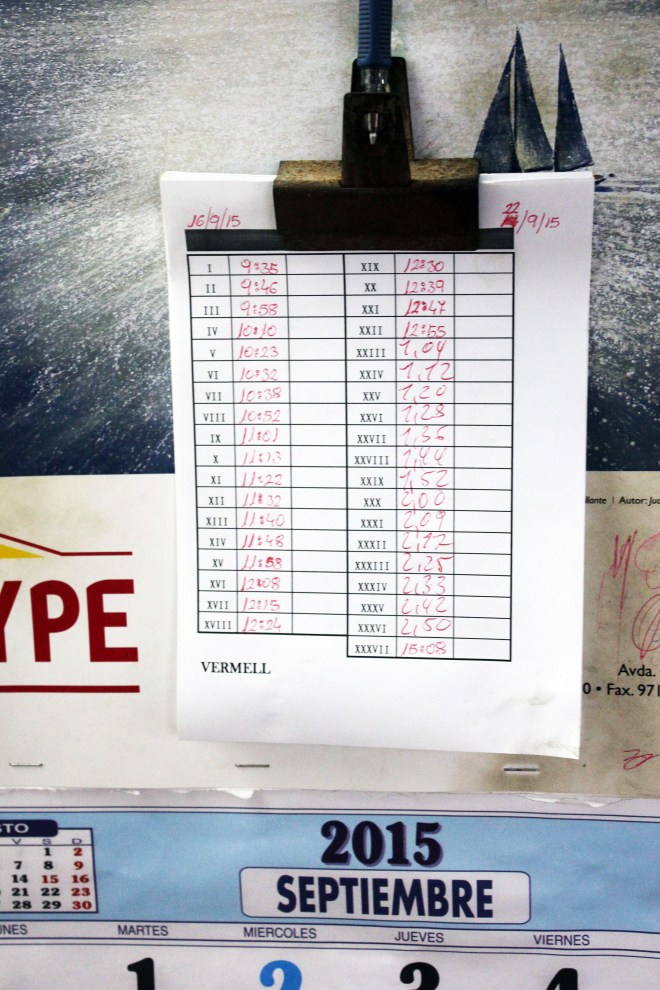 16/9/15
22/9/15
I 9:35
II 9:46
III 9:58
IV 10:10
V 10:23
VI 10:32
VII 10:38
VIII 10:52
IX 11:01
X 11:13
XI 11:22
XII 11:32
XIII 11:40
XIV 11:48
XV 11:58
XVI 12:08
XVII 12:15
XVIII 12:24
XIX 12:30
XX 12:39
XXI 12:47
XXII 12:55
XXIII 1,04
XXIV 1,12
XXV 1,20
XXVI 1,28
XXVII 1,36
XXVIII 1,44
XXIX 1,52
XXX 2,00
XXXI 2,09
XXXII 2,17
XXXIII 2,25
XXXIV 2,33
XXXV 2,42
XXXVI 2,50
XXXVII 15:08
VERMELL
llante | Autor: Juc
YPE
Avda.
0 • Fax. 971
STO
V S D
1 2
7 8 9
14 15 16
21 22 23
28 29 30
2015
SEPTIEMBRE
UNES MARTES MIERCOLES JUEVES VIERNES
1 2 3 4